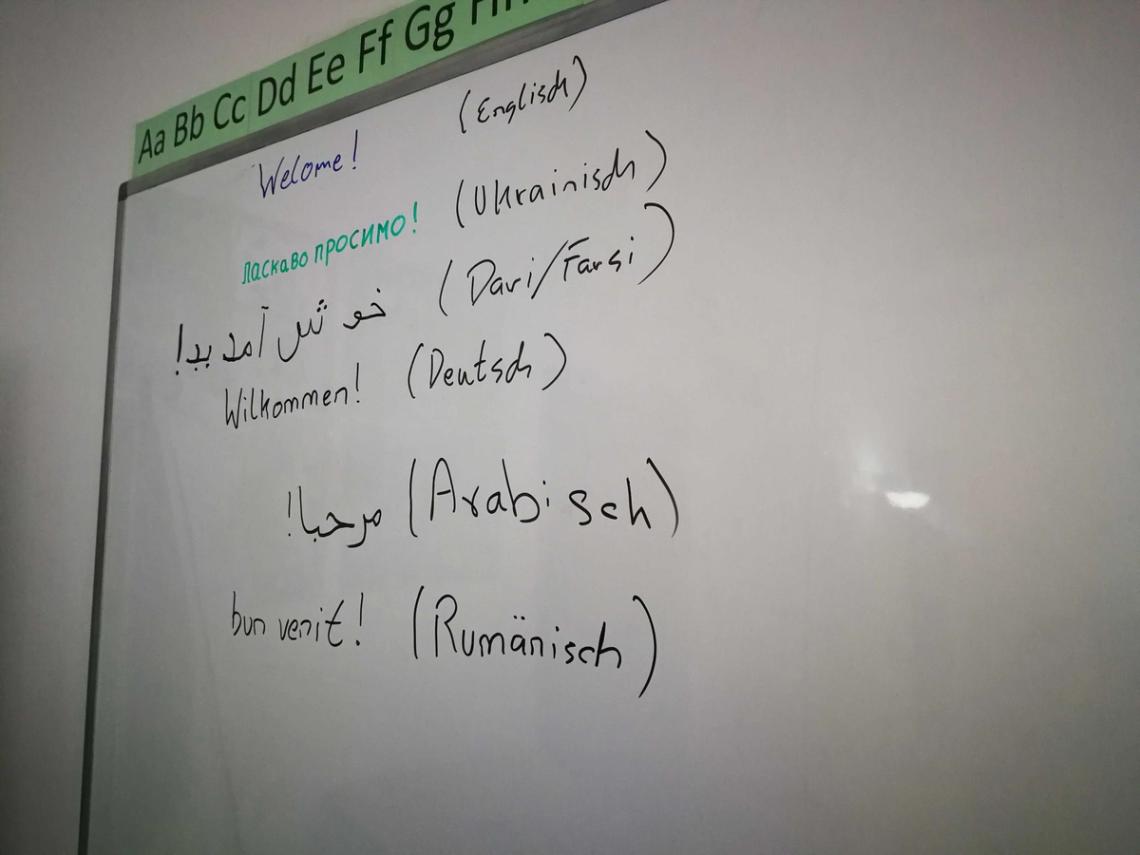 Aa Bb Cc Dd Ee Ff Gg
Welome! (Englisch)
ласкаво просимо! (Ukrainisch)
خوش آمدید! (Dari/Farsi)
Wilkommen! (Deutsch)
مرحبا! (Arabisch)
bun venit! (Rumänisch)